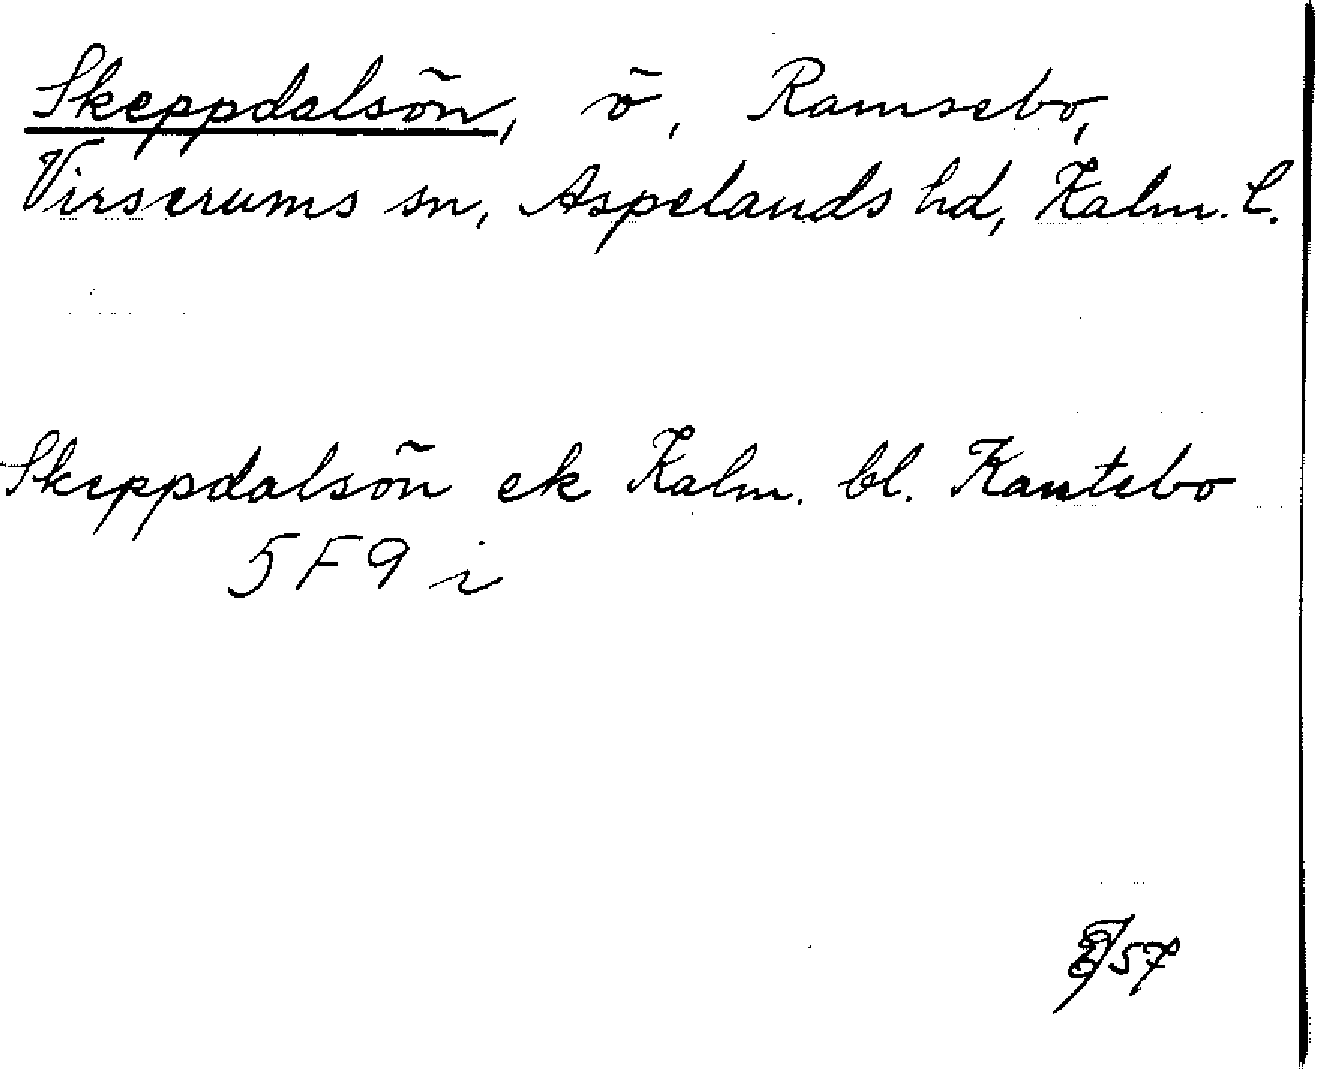 Skeppdalsön, ö, Ramsebo,
Virserums sn, Aspelands hd, Kalm. l.
Skeppdalsön ek Kalm. bl. Kantebo
5F9 i